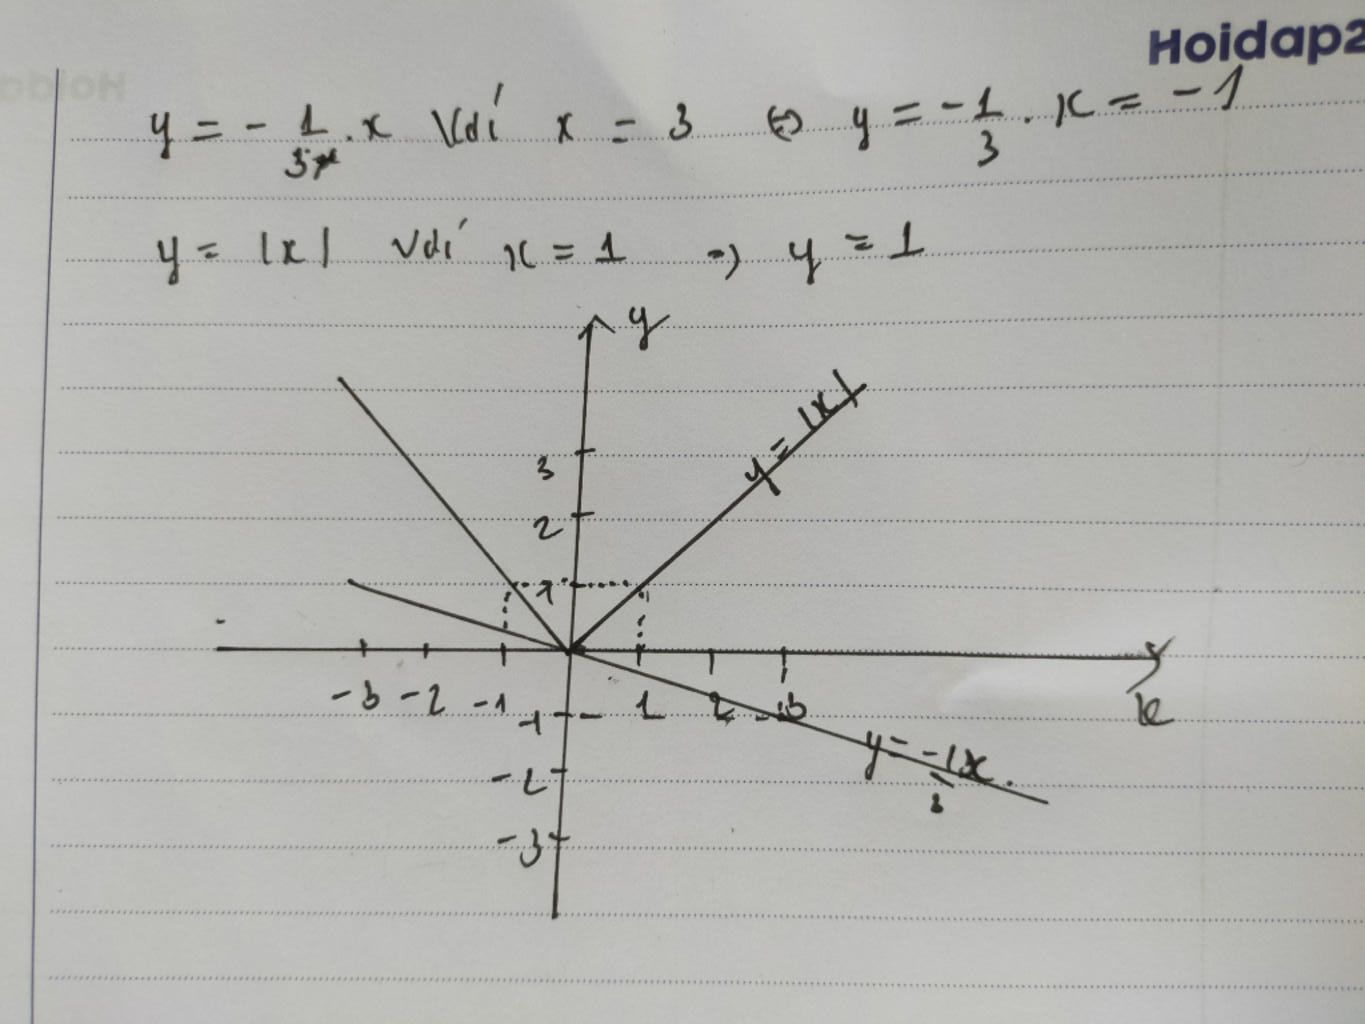 Hoidap2
y = - 1/3 . x Với x = 3 ⇔ y = - 1/3 . x = - 1
y = |x| Với x = 1 ⇒ y = 1
y
y = |x|
3
2
1
-3 -2 -1 1 2 3
-1
x
y = -1/3 x
-2
-3